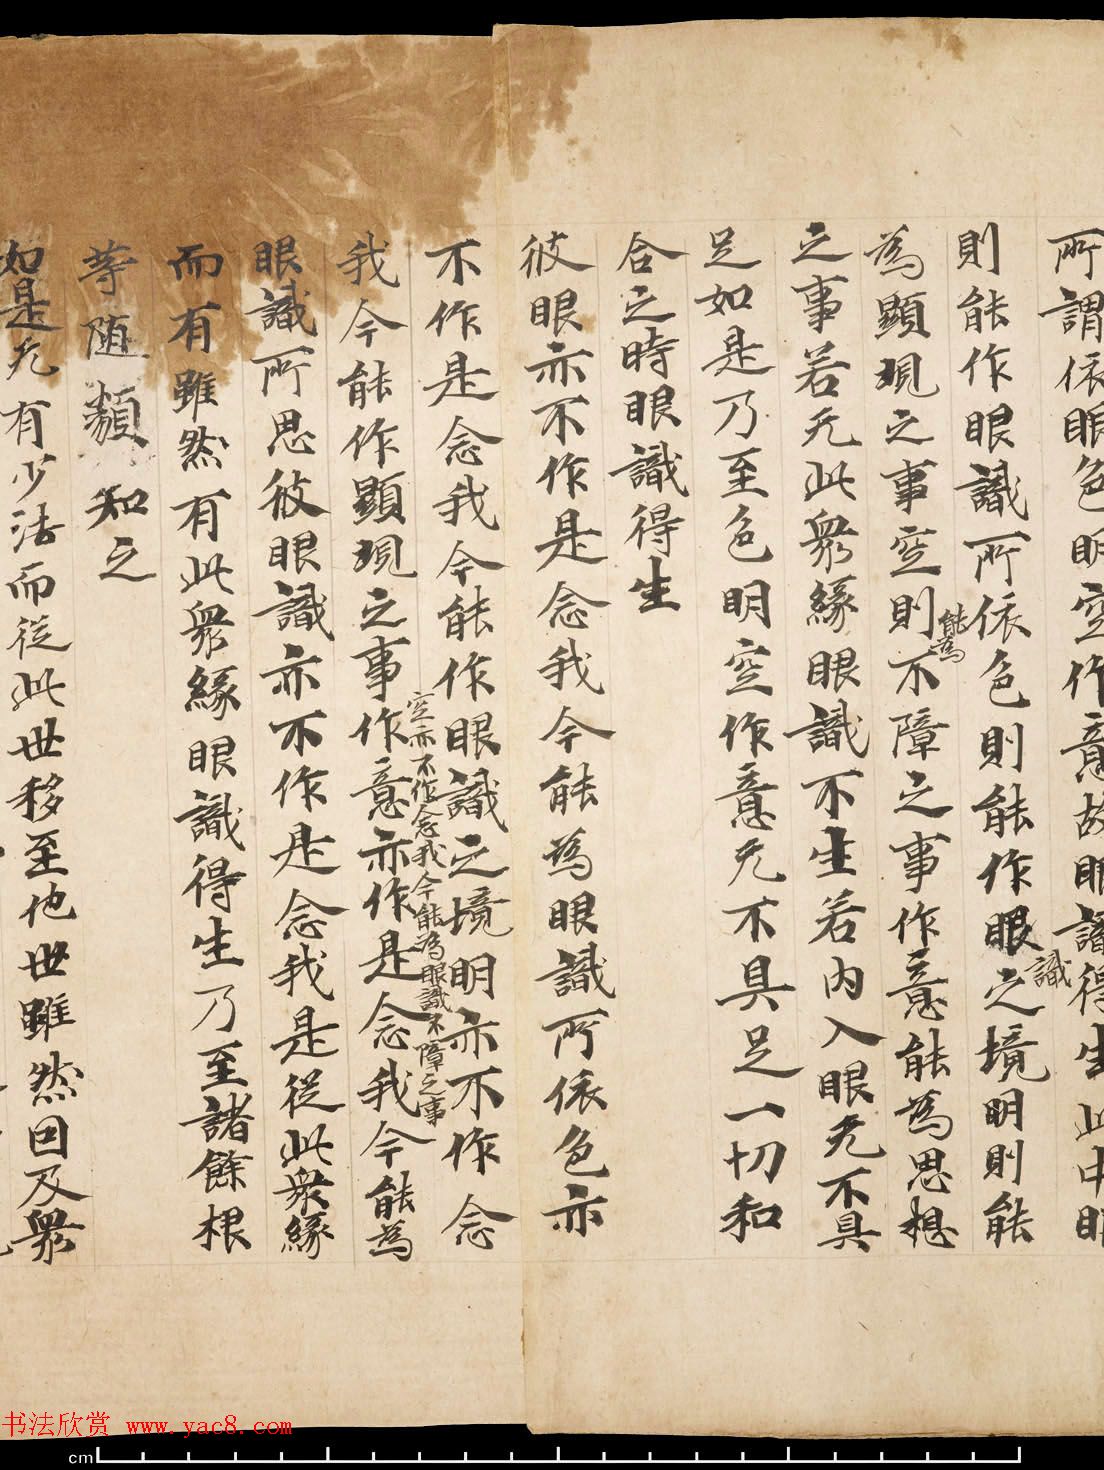 所謂依眼色明空作意故眼識得生此中眼
則能作眼識所依色則能作眼之境明則能
識
為顯現之事空則不障之事作意能為思想
能為
之事若无此衆緣眼識不生若内入眼无不具
足如是乃至色明空作意无不具足一切和
合之時眼識得生
彼眼亦不作是念我今能為眼識所依色亦
不作是念我今能作眼識之境明亦不作念
我今能作顯現之事作意亦作是念我今能為
空亦不作念我今能為眼識不障之事
眼識所思彼眼識亦不作是念我是從此衆緣
而有雖然有此衆緣眼識得生乃至諸餘根
等随類知之
如是无有少法而從此世移至他世雖然因及衆
书法欣赏 www.yac8.com
cm